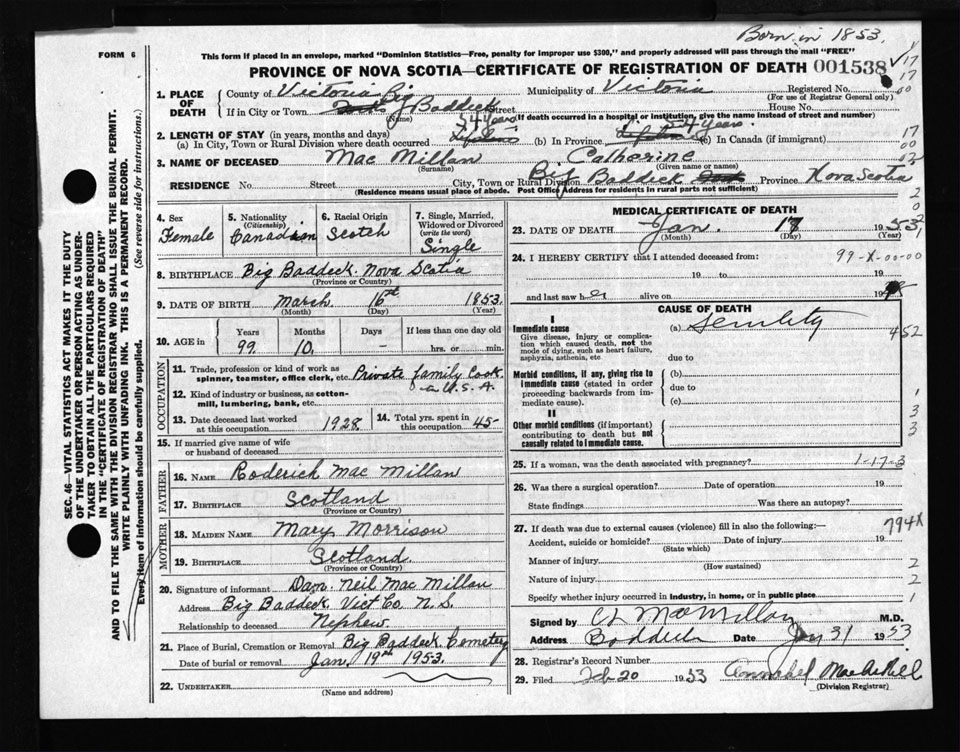 Born in 1853.
FORM 6
This form if placed in an envelope, marked "Dominion Statistics—Free, penalty for improper use $300," and properly addressed will pass through the mail "FREE"
PROVINCE OF NOVA SCOTIA—CERTIFICATE OF REGISTRATION OF DEATH 001538
1. PLACE OF DEATH
County of Victoria Municipality of Victoria Registered No.
(For use of Registrar General only)
If in City or Town Big Baddeck Street House No.
(Name) If death occurred in a hospital or institution, give the name instead of street and number)
2. LENGTH OF STAY (in years, months and days) 54 years 54 years.
(a) In City, Town or Rural Division where death occurred (b) In Province (c) In Canada (if immigrant)
3. NAME OF DECEASED Mac Millan Catherine
(Surname) (Given name or names)
RESIDENCE No. Street City, Town or Rural Division Big Baddeck Province Nova Scotia
(Residence means usual place of abode. Post Office Address for residents in rural parts not sufficient)
4. Sex Female
5. Nationality (Citizenship) Canadian
6. Racial Origin Scotch
7. Single, Married, Widowed or Divorced (write the word) Single
8. BIRTHPLACE Big Baddeck Nova Scotia
(Province or Country)
9. DATE OF BIRTH March 16th 1853.
(Month) (Day) (Year)
10. AGE in Years Months Days If less than one day old
99. 10. - hrs. or min.
OCCUPATION
11. Trade, profession or kind of work as spinner, teamster, office clerk, etc. Private family Cook
12. Kind of industry or business, as cotton-mill, lumbering, bank, etc. U.S.A.
13. Date deceased last worked at this occupation 1928.
14. Total yrs. spent in this occupation 45-
15. If married give name of wife or husband of deceased
FATHER
16. NAME Roderick Mac Millan
17. BIRTHPLACE Scotland
(Province or Country)
MOTHER
18. MAIDEN NAME Mary Morrison
19. BIRTHPLACE Scotland.
(Province or Country)
20. Signature of informant Dan. Neil Mac Millan
Address Big Baddeck Vict Co. N.S.
Relationship to deceased Nephew.
21. Place of Burial, Cremation or Removal Big Baddeck Cemetery
Date of burial or removal Jan. 19th 1953.
22. UNDERTAKER
(Name and address)
MEDICAL CERTIFICATE OF DEATH
23. DATE OF DEATH Jan. 17 1953
(Month) (Day) (Year)
24. I HEREBY CERTIFY that I attended deceased from: 99-X-00-00
19 to 19
and last saw her alive on 19
CAUSE OF DEATH
I
Immediate cause (a) Senility 452
Give disease, injury or complication which caused death, not the mode of dying, such as heart failure, asphyxia, asthenia, etc
due to
Morbid conditions, if any, giving rise to immediate cause (stated in order proceeding backwards from immediate cause). (b)
due to
(c)
II
Other morbid conditions (if important) contributing to death but not causally related to immediate cause.
25. If a woman, was the death associated with pregnancy? 1-17-3
26. Was there a surgical operation? Date of operation 19
State findings Was there an autopsy?
27. If death was due to external causes (violence) fill in also the following:— 794X
Accident, suicide or homicide? Date of injury 19
(State which)
Manner of injury
(How sustained)
Nature of injury
Specify whether injury occurred in industry, in home, or in public place
Signed by C L MacMillan M.D.
Address Baddeck Date Jan 31 1953
28. Registrar's Record Number
29. Filed Feb 20 1953 Annabel MacAskill
(Division Registrar)
SEC. 46—VITAL STATISTICS ACT MAKES IT THE DUTY
OF THE UNDERTAKER OR PERSON ACTING AS UNDERTAKER TO OBTAIN ALL THE PARTICULARS REQUIRED
IN THE "CERTIFICATE OF REGISTRATION OF DEATH"
AND TO FILE THE SAME WITH THE DIVISION REGISTRAR WHO SHALL ISSUE THE BURIAL PERMIT.
WRITE PLAINLY WITH UNFADING INK. THIS IS A PERMANENT RECORD.
Every item of information should be carefully supplied. (See reverse side for instructions.)